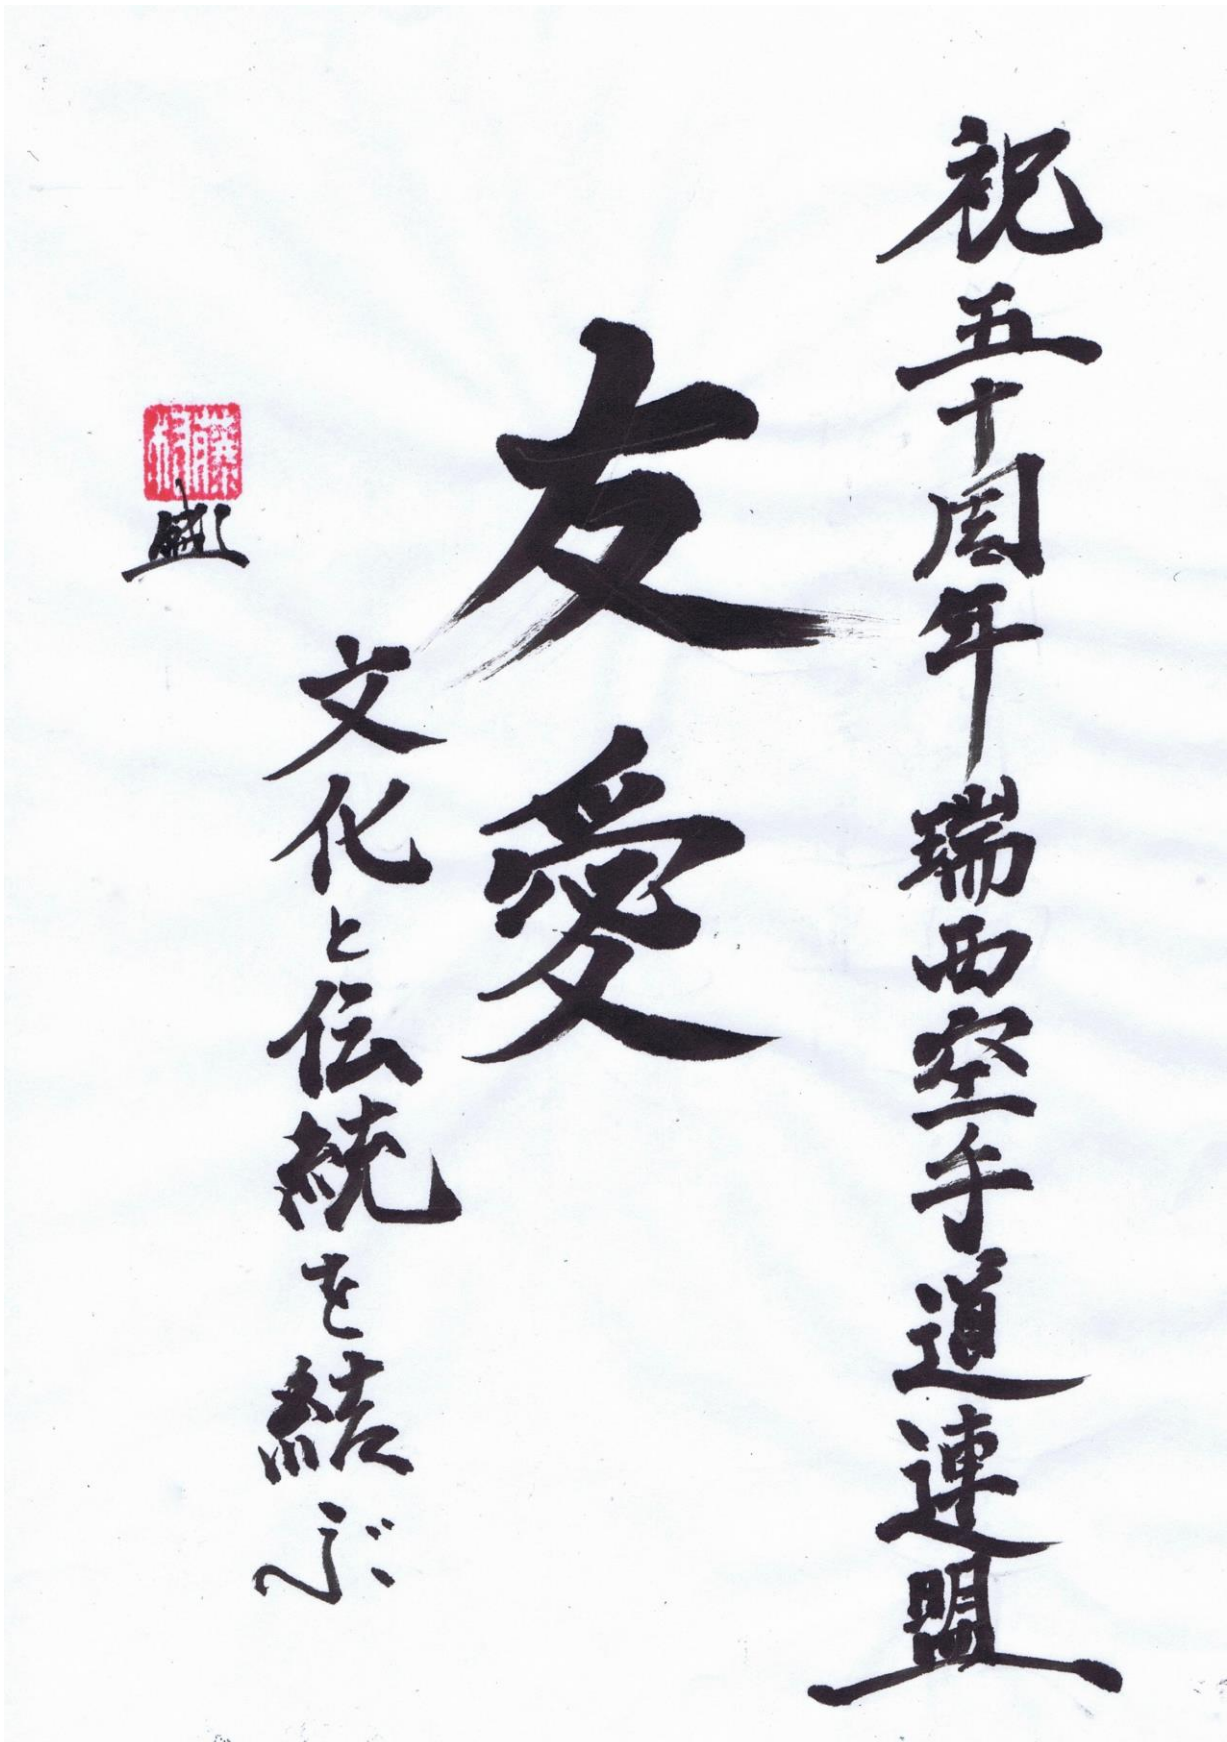 祝五十周年瑞西空手道連盟
友愛
文化と伝統を結ぶ
盛